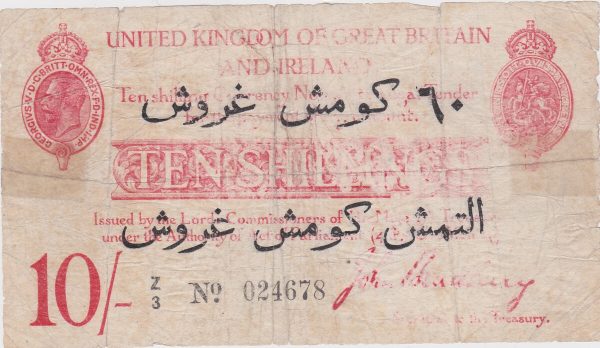 UNITED KINGDOM OF GREAT BRITAIN
AND IRELAND
GEORGIVS·V·D·G·BRITT·OMN·REX·F·D·IND·IMP
Ten shilling Currency Note
٦٠ كومش غروش
TEN SHILLING
Issued by the Lords Commissioners of
التمش كومش غروش
under the Authority of
10/-
Z
3
Nº 024678
John Bradbury
Treasury.